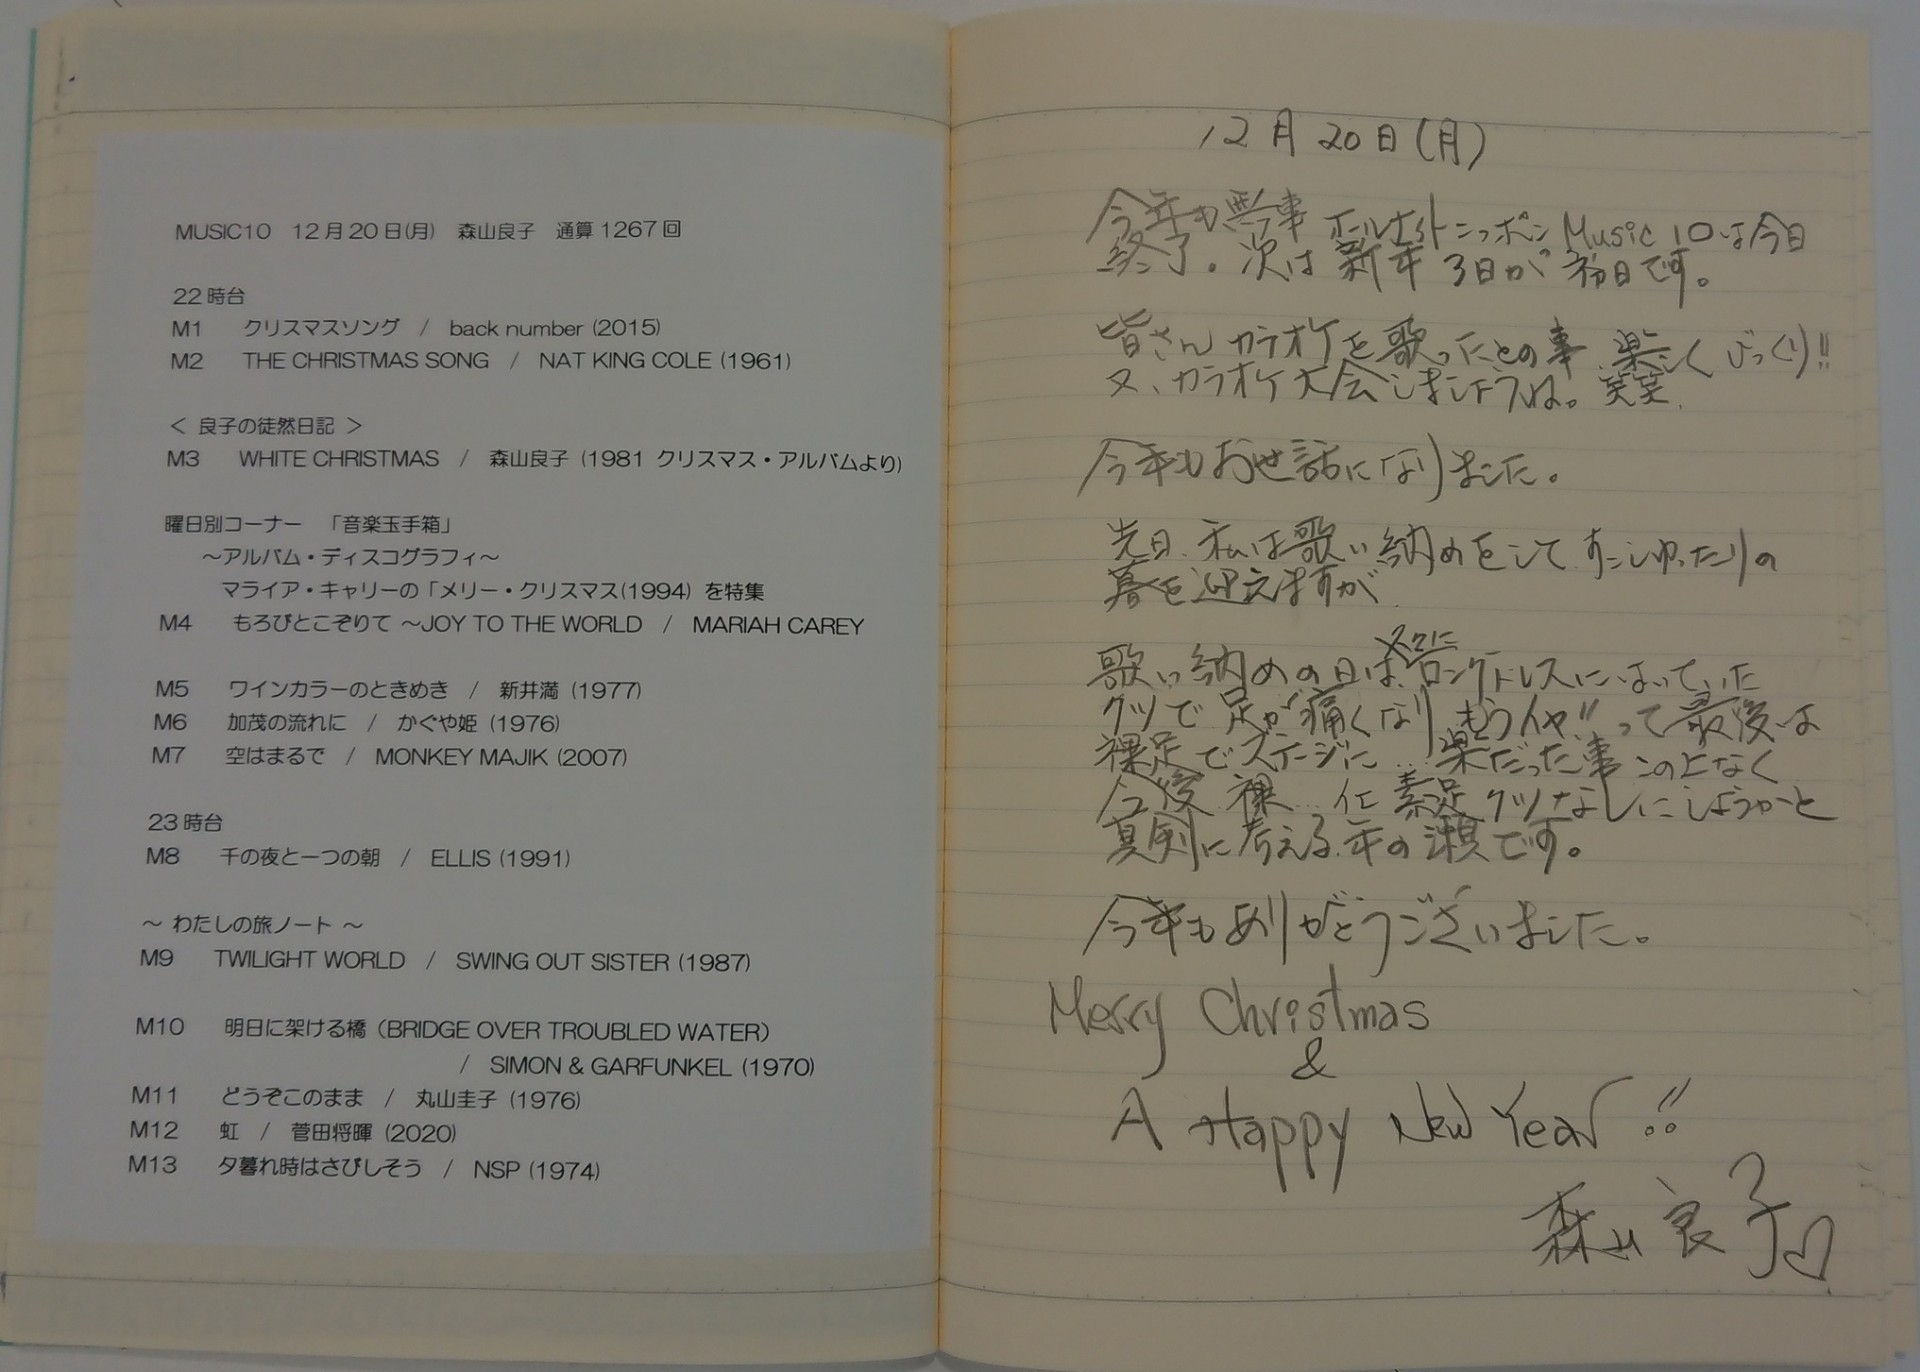 MUSIC10 12月20日(月) 森山良子 通算1267回
22時台
M1 クリスマスソング / back number (2015)
M2 THE CHRISTMAS SONG / NAT KING COLE (1961)
< 良子の徒然日記 >
M3 WHITE CHRISTMAS / 森山良子 (1981 クリスマス・アルバムより)
曜日別コーナー 「音楽玉手箱」
～アルバム・ディスコグラフィ～
マライア・キャリーの「メリー・クリスマス(1994) を特集
M4 もろびとこぞりて ～JOY TO THE WORLD / MARIAH CAREY
M5 ワインカラーのときめき / 新井満 (1977)
M6 加茂の流れに / かぐや姫 (1976)
M7 空はまるで / MONKEY MAJIK (2007)
23時台
M8 千の夜と一つの朝 / ELLIS (1991)
～ わたしの旅ノート ～
M9 TWILIGHT WORLD / SWING OUT SISTER (1987)
M10 明日に架ける橋（BRIDGE OVER TROUBLED WATER）
/ SIMON & GARFUNKEL (1970)
M11 どうぞこのまま / 丸山圭子 (1976)
M12 虹 / 菅田将暉 (2020)
M13 夕暮れ時はさびしそう / NSP (1974)
12月20日(月)
今年も無事 オールナイトニッポン Music 10は今日
終了。次は新年 3日が 初日です。
皆さん カラオケを歌ったとの事、楽しく びっくり!!
又、カラオケ大会しましょうね。笑笑.
今年もお世話になりました。
先日、私は歌い納めをして すこしゆったりの
暮を迎えますが
歌い納めの日は、ロングドレスにはいていた
クツで 足が痛くなり もうイヤ!! って最後は
裸足でステージに… 楽だった事 この上なく
今後 裸… イヤ 素足 クツなしにしようかと
真剣に考える.年の瀬です。
今年もありがとうございました。
Merry Christmas
&
A Happy New Year!!
森山良子♡